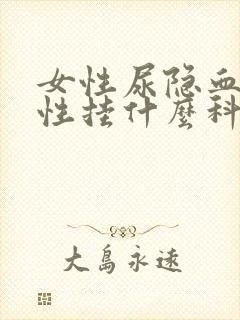 女性尿隐血
性挂什麼科
大島永遠